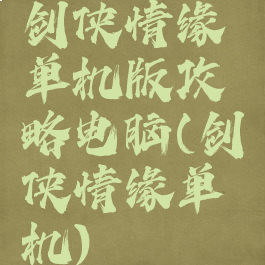 剑侠情缘
单机版攻
略电脑(剑
侠情缘单
机)